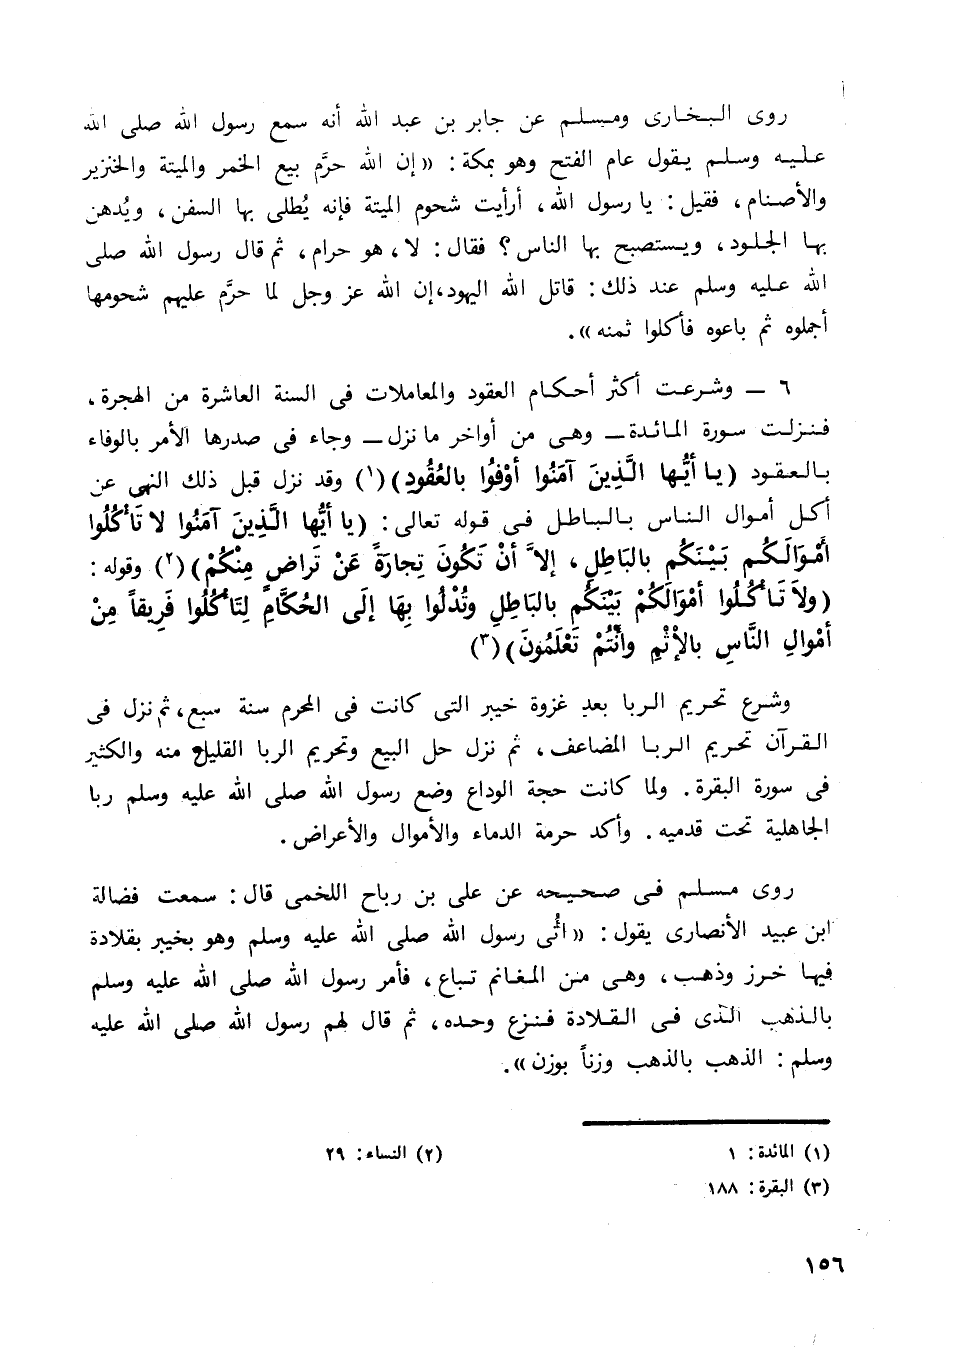 روى البخارى ومسلم عن جابر بن عبد الله أنه سمع رسول الله صلى الله
عليه وسلم يقول عام الفتح وهو بمكة: «إن الله حرَّم بيع الخمر والميتة والخنزير
والأصنام، فقيل: يا رسول الله، أرأيت شحوم الميتة فإنه يُطلى بها السفن، ويُدهن
بها الجلود، ويستصبح بها الناس؟ فقال: لا، هو حرام، ثم قال رسول الله صلى
الله عليه وسلم عند ذلك: قاتل الله اليهود، إن الله عز وجل لما حرَّم عليهم شحومها
أجملوه ثم باعوه فأكلوا ثمنه».
٦ ــ وشرعت أكثر أحكام العقود والمعاملات فى السنة العاشرة من الهجرة،
فنزلت سورة المائدة ــ وهى من أواخر ما نزل ــ وجاء فى صدرها الأمر بالوفاء
بالعقود (يا أيُّها الَّذِينَ آمَنُوا أوْفُوا بالعُقُودِ)(١) وقد نزل قبل ذلك النهى عن
أكل أموال الناس بالباطل فى قوله تعالى: (يا أيُّها الَّذِينَ آمَنُوا لا تَأكُلُوا
أمْوَالَكُم بَيْنَكُم بالبَاطِلِ، إلاَّ أنْ تَكُونَ تِجارَةً عَنْ تَراضٍ مِنْكُمْ)(٢) وقوله:
(ولاَ تَأكُلُوا أمْوَالَكُمْ بَيْنَكُم بالبَاطِلِ وتُدْلُوا بِهَا إلَى الحُكَّامِ لِتَأكُلُوا فَرِيقاً مِنْ
أمْوالِ النَّاسِ بالإثْمِ وأنْتُمْ تَعْلَمُونَ)(٣)
وشرع تحريم الربا بعد غزوة خيبر التى كانت فى المحرم سنة سبع، ثم نزل فى
القرآن تحريم الربا المضاعف، ثم نزل حل البيع وتحريم الربا القليل منه والكثير
فى سورة البقرة. ولما كانت حجة الوداع وضع رسول الله صلى الله عليه وسلم ربا
الجاهلية تحت قدميه. وأكد حرمة الدماء والأموال والأعراض.
روى مسلم فى صحيحه عن على بن رباح اللخمى قال: سمعت فضالة
ابن عبيد الأنصارى يقول: «أُتى رسول الله صلى الله عليه وسلم وهو بخيبر بقلادة
فيها خرز وذهب، وهى من المغانم تباع، فأمر رسول الله صلى الله عليه وسلم
بالذهب الذى فى القلادة فنزع وحده، ثم قال لهم رسول الله صلى الله عليه
وسلم: الذهب بالذهب وزناً بوزن».
(١) المائدة: ١ (٢) النساء: ٢٩
(٣) البقرة: ١٨٨
١٥٦